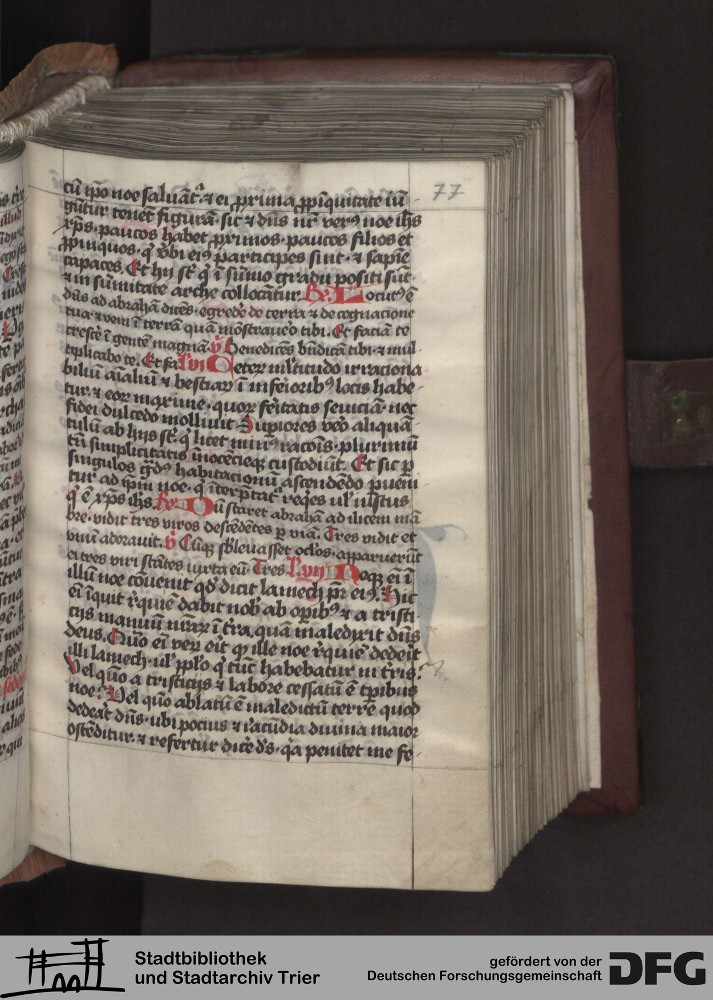 77
cū ip̄o noe saluāt᷑ ⁊ ei ꝓxima ꝓpīquitate iū
gūtur tenet figurā. sic ⁊ dn̄s nr̄ verꝰ noe ih̄s
xp̄s. paucos habet ꝓximos. paucos filios et
ꝓpinquos. q̇ v̄bi eiꝰ participes sint. ⁊ sapīe
capaces. Et hij st̄ q̇ ī sūmo gradu positi sūt.
⁊ in sūmitate arche collocātur. R̄. Locutꝰ ē
dūs ad abrahā dicēs. egrede de terra ⁊ de cognacione
tua. ⁊ veni ī terrā quā mōstrauero tibi. Et faciā te
crescē ī gentē magnā. v̄ Benedicēs bn̄dicā tibi. ⁊ mul
tiplicabo te. Et fa. lvi Ceter m̄ltitudo irraciona
biliū aīaliū ⁊ bestiarꝝ ī inferioribꝰ locis habe
tur. ⁊ eorꝝ maxime. quorꝝ feritatis seuiciā. nec
fidei dulcedo molliuit. Supiores vero aliquā
tulū ab hijs st̄. q̇ licet minꝰ racōis. plurimū
tn̄ simplicitatis īnocēcieqꝫ custodiūt. Et sic ꝑ
singulos gͣdꝰ habitacionū ascendēdo pueni
tur ad ip̄m noe. q̇ īterp̄tat᷑ reqͥes ul᷑ iustus
q̇ ē xp̄s ih̄s. R̄. Dū staret abrahā ad ilicem mā
bre. vidit tres viros descēdētes ꝑ viā. Tres vidit et
vnū adorauit. v̄ Cūqꝫ sb̄leuasset oc̄los. apparuerūt
ei tres viri stātes iuxta eū. Tres. lvii Neqꝫ ei ī
illū noe cōuenit qd̓ dicit lamech pr̄ eiꝰ. Hic
ei īquit rͤquiē dabit nob̓ ab opībꝰ ⁊ a tristi
cijs manuū nr̄arꝝ ī t̄ra. quā maledixit dn̄s
deus. Quō ei verꝝ eīt qꝫ ille noe rͤquiē dedeīt
illi lamech. ul᷑ pp̄lo q̇ tūc habebatur in tr̄is.
Vel quō a tristicijs ⁊ labore cessatū ē tp̄ribus
noe. Vel quō ablatū ē maledictū terre quod
dederat dn̄s. ubi pocius ⁊ iracūdia diuina maior
ostēditur. ⁊ refertur dice d̄s. qͣa penitet me fe
Stadtbibliothek
und Stadtarchiv Trier
gefördert von der
Deutschen Forschungsgemeinschaft
DFG